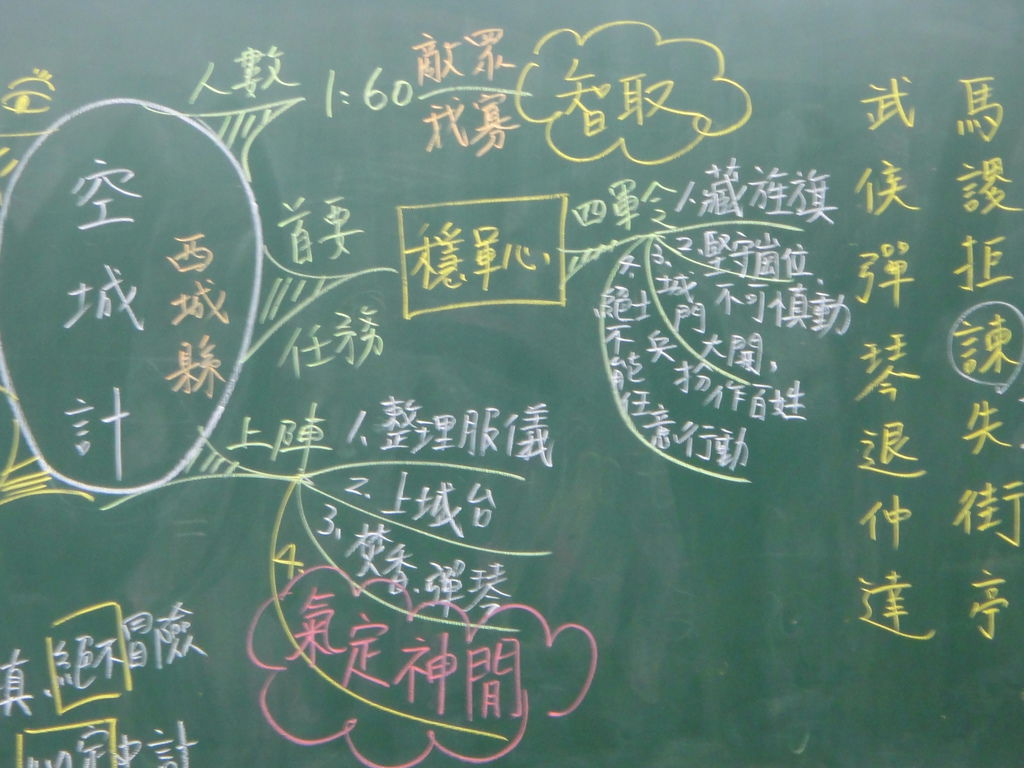 馬謖拒諫失街亭
武侯彈琴退仲達
空城計
西城縣
人數
1:60
敵眾
我寡
智取
首要
任務
穩軍心
四軍令
1.藏旌旗
2.堅守崗位、
不可慎動
3.城門大開,
兵扮作百姓
4.絕不能任意行動
上陣
1.整理服儀
2.上城台
3.焚香、彈琴
4.
氣定神閒
絕不冒險
計